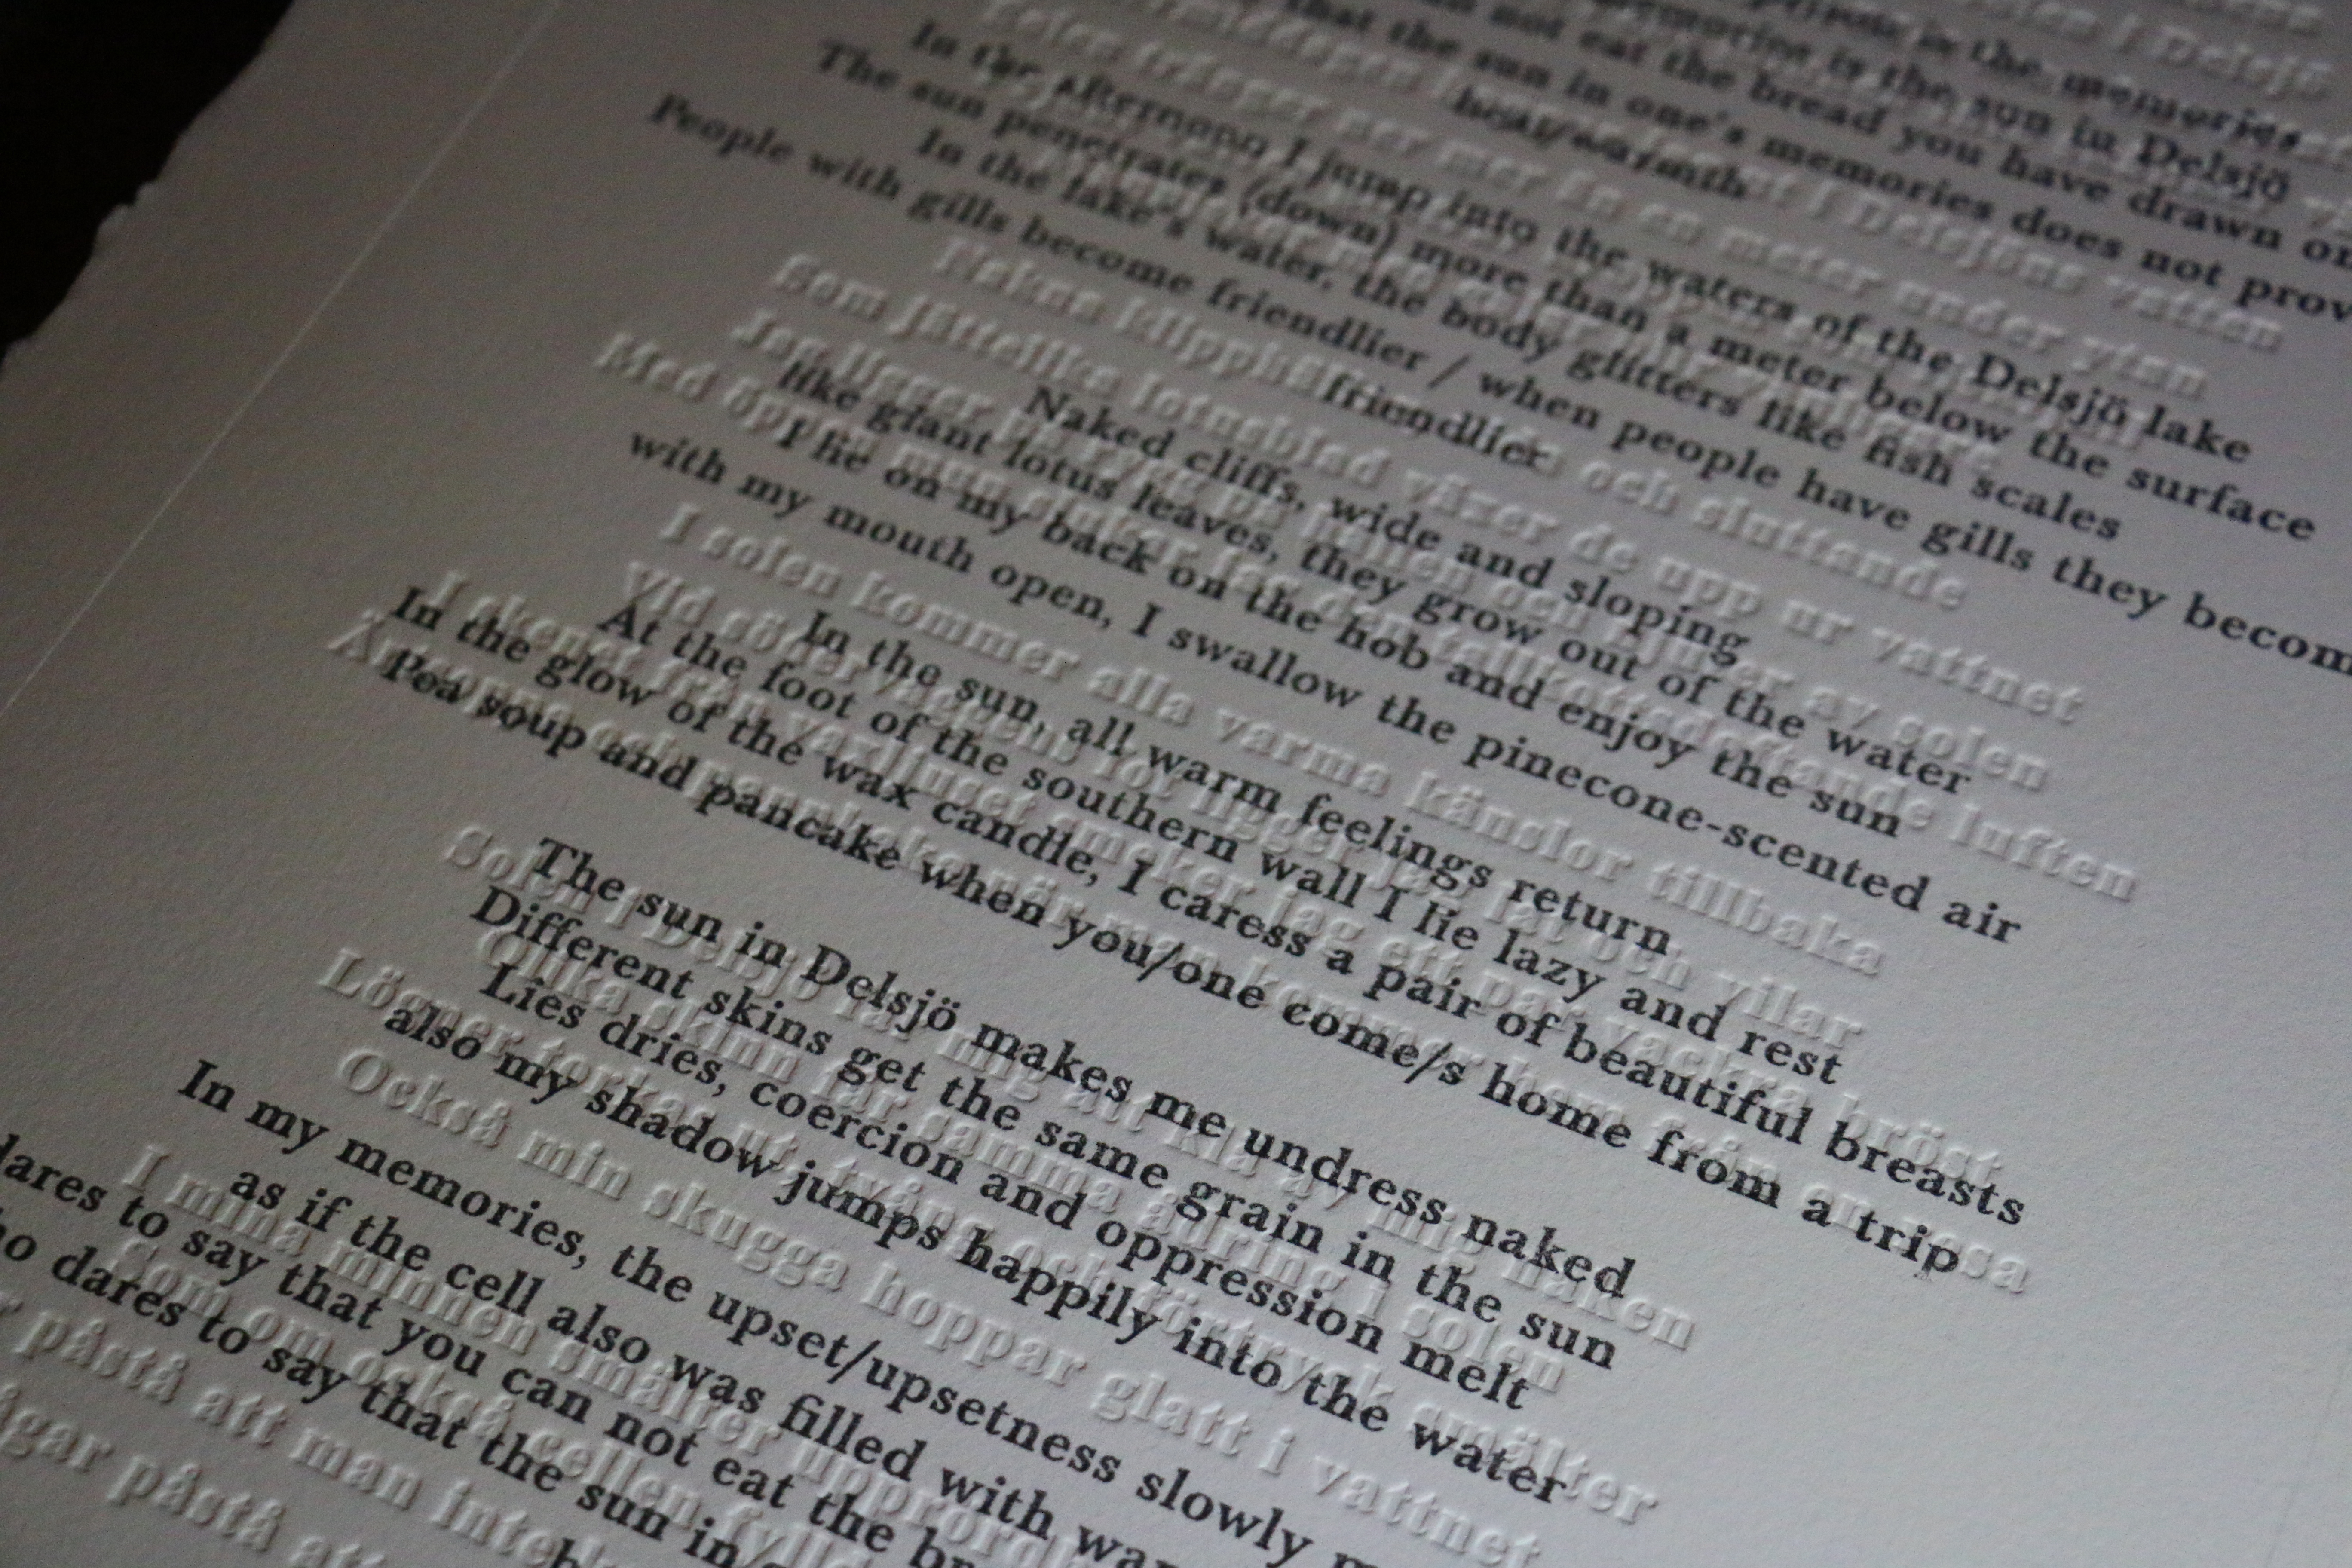 the memories
is the sun in Delsjö
not eat the bread you have drawn on
that the sun in one's memories does not prov
heat/warmth
In the afternoon I jump into the waters of the Delsjö lake
The sun penetrates (down) more than a meter below the surface
In the lake's water, the body glitters like fish scales
People with gills become friendlier / when people have gills they becom
friendlier
Naked cliffs, wide and sloping
like giant lotus leaves, they grow out of the water
I lie on my back on the hob and enjoy the sun
with my mouth open, I swallow the pinecone-scented air
In the sun, all warm feelings return
At the foot of the southern wall I lie lazy and rest
In the glow of the wax candle, I caress a pair of beautiful breasts
Pea soup and pancake when you/one come/s home from a trip
The sun in Delsjö makes me undress naked
Different skins get the same grain in the sun
Lies dries, coercion and oppression melt
also my shadow jumps happily into the water
In my memories, the upset/upsetness slowly
as if the cell also was filled with
dares to say that you can not eat the
dares to say that the sun in
i Delsjöns vatten
mer än en meter under ytan
Nakna klipphällar och sluttande
Som jättelika lotusblad växer de upp ur vattnet
Jag ligger på rygg på hällen och njuter av solen
Med öppen mun doftande luften
I solen kommer alla varma känslor tillbaka
Vid ligger jag lat och vilar
I skenet från vaxljuset smeker jag ett par vackra bröst
Ärtsoppa och pannkaka när man kommer hem från en resa
Solen i Delsjö får mig att klä av mig naken
Olika skinn får samma ådring i solen
Lögner torkas ut, tvång och förtryck smälter
Också min skugga hoppar glatt i vattnet
I mina minnen smälter
Som om också cellen
påstå att man inte
påstå att